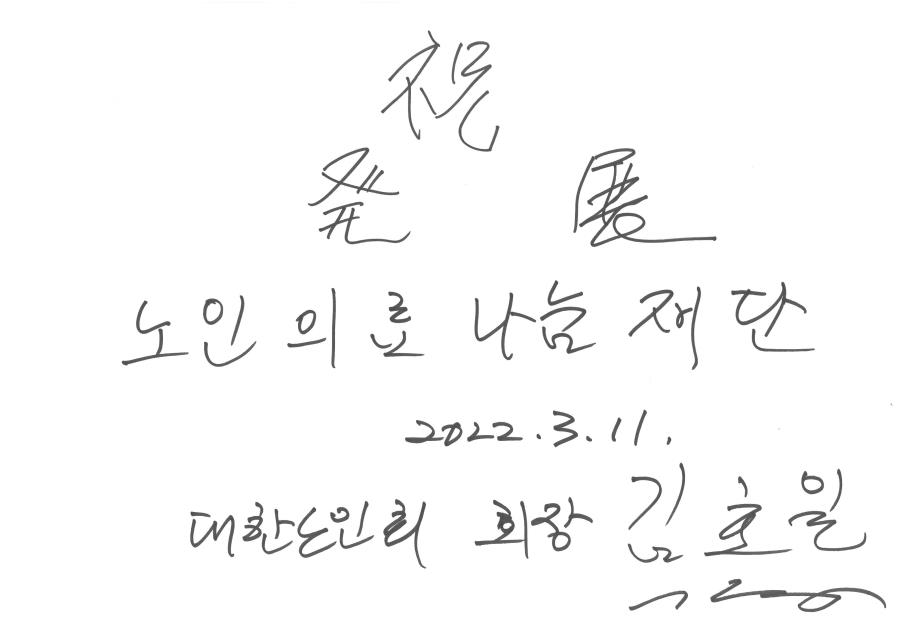 祝
発 展
노인의료나눔재단
2022.3.11.
대한노인회 회장 김호일